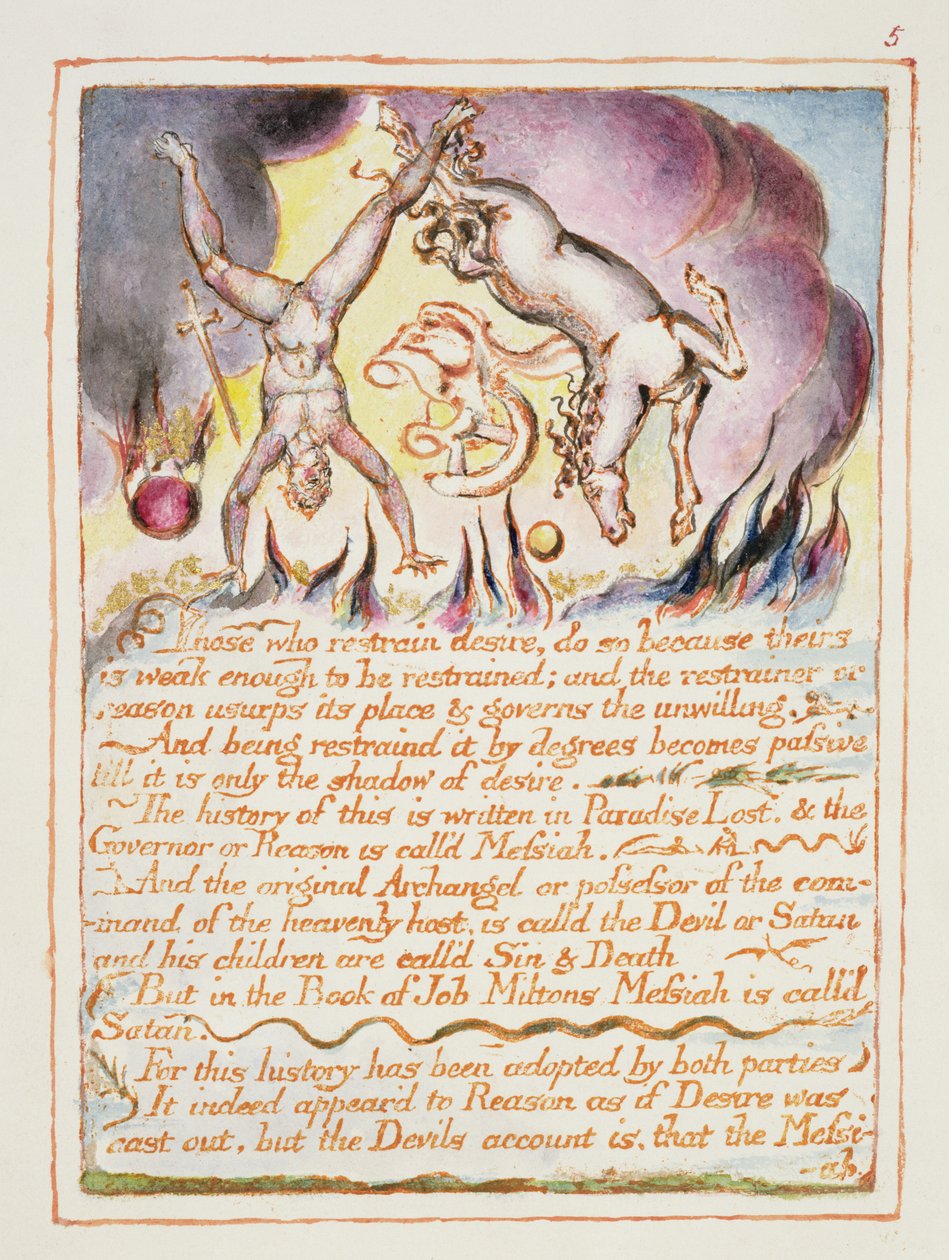 5
Those who restrain desire, do so because theirs
is weak enough to be restrained; and the restrainer or
reason usurps its place & governs the unwilling.
And being restraind it by degrees becomes paſsive
till it is only the shadow of desire.
The history of this is written in Paradise Lost. & the
Governor or Reason is call'd Meſsiah.
And the original Archangel or poſseſsor of the com-
-mand of the heavenly host, is calld the Devil or Satan
and his children are call'd Sin & Death
But in the Book of Job Miltons Meſsiah is call'd
Satan.
For this history has been adopted by both parties
It indeed appear'd to Reason as if Desire was
cast out, but the Devils account is, that the Meſsi-
-ah